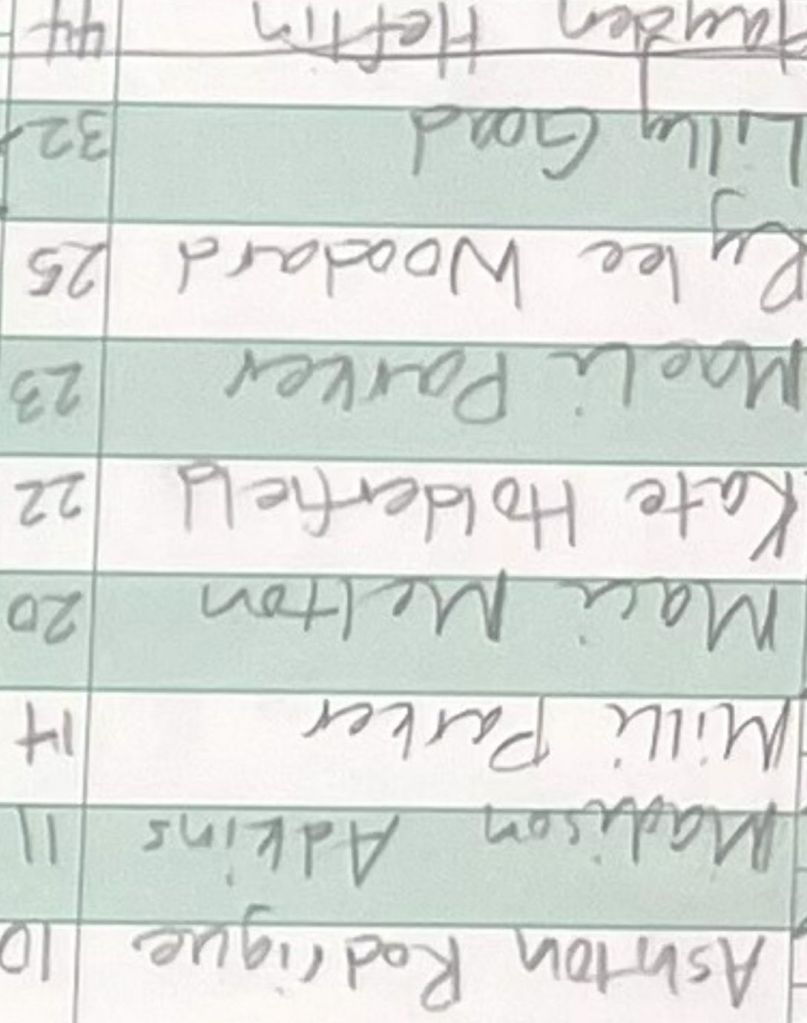 Ashton Rodrigue 10
Madison Adkins 11
Milli Parker 14
Maci Melton 20
Kate Holderfield 22
Maeli Parker 23
Rylee Woodard 25
Lilly Goad 32
Hayden Heflin 44